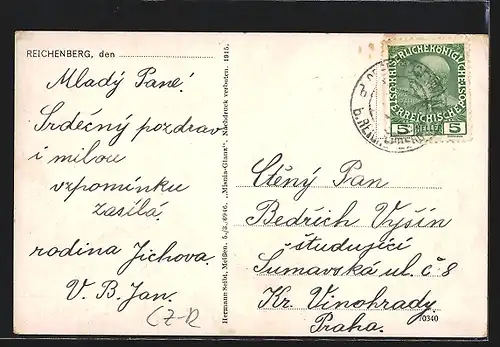 REICHENBERG, den
Mladý Pane!
Srdečný pozdrav
i milou
vzpomínku
zasílá
rodina Jichova.
V. B. Jan.
CZ-R
Hermann Seibt, Meißen. 5./3./6946. „Miscia-Gitana“. Nachdruck verboten. 1915.
KAISERLICHE KÖNIGLICHE
ÖSTERREICHISCHE POST
5 HELLER 5
b. REICHENBERG
Ctěný Pan
Bedřich Vyšín
študující
Šumavská ul. č 8
Kr. Vinohrady
Praha.
70340